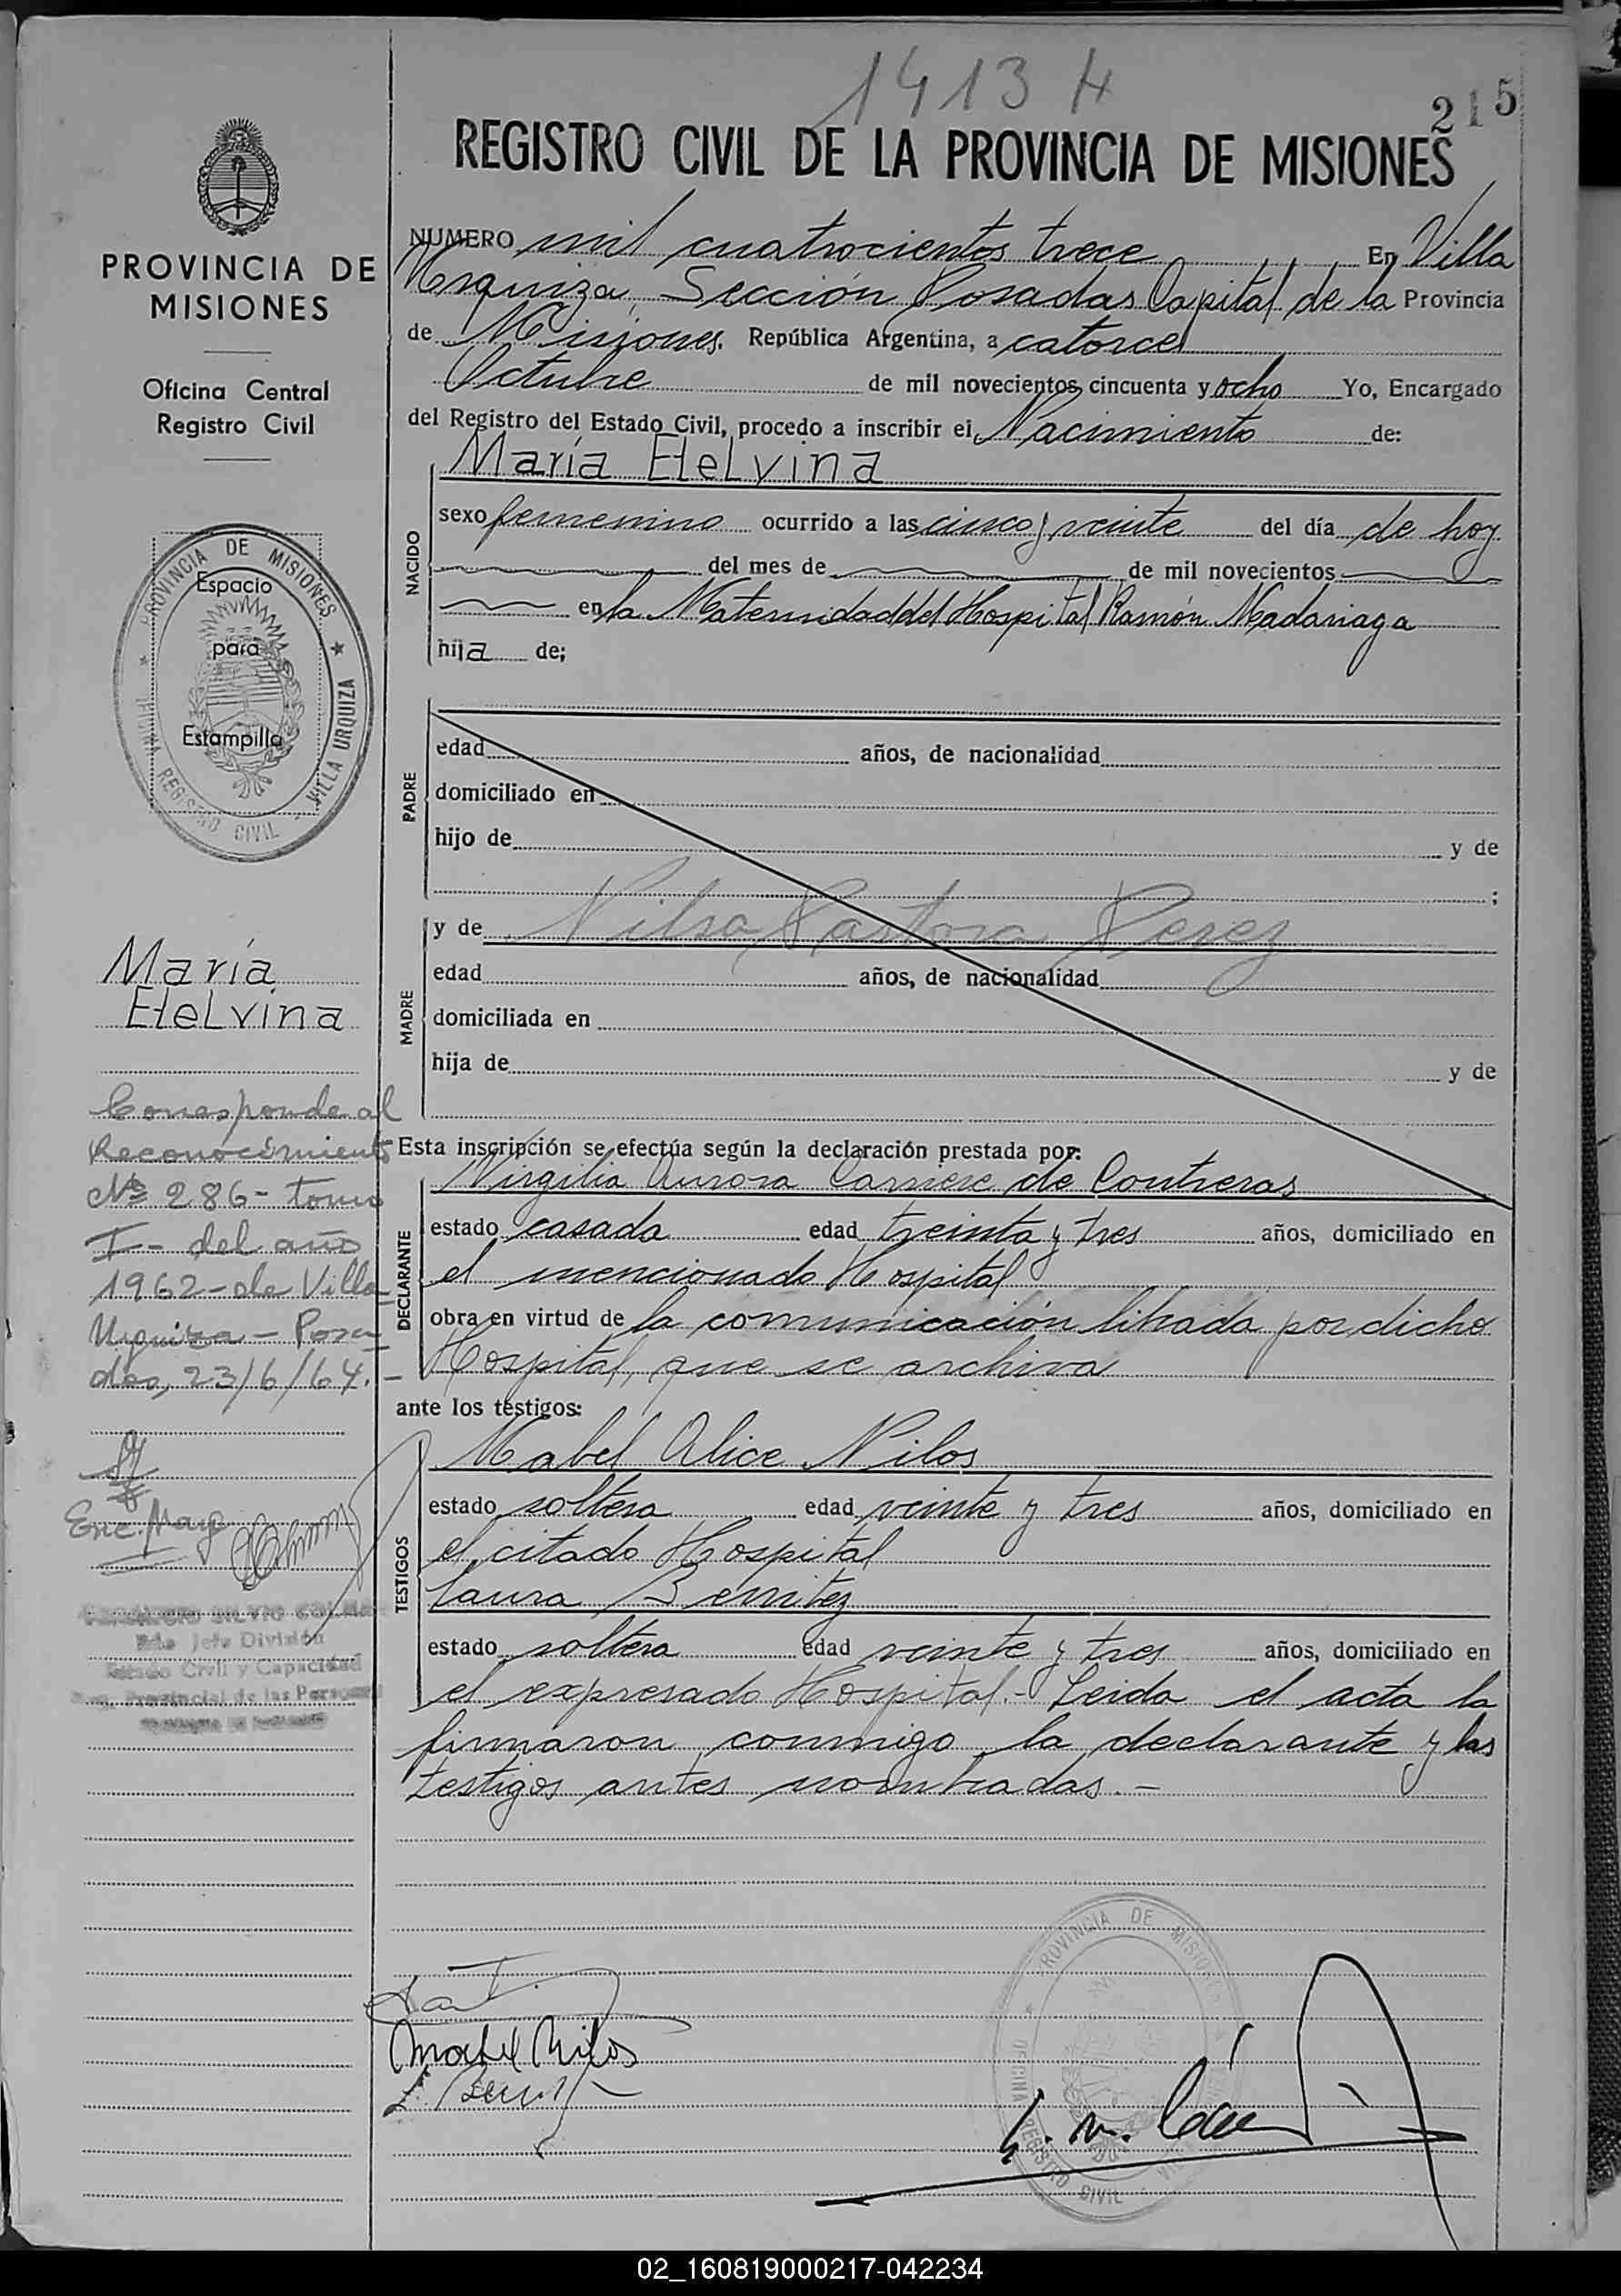 1413 H
215
REGISTRO CIVIL DE LA PROVINCIA DE MISIONES
PROVINCIA DE
MISIONES
Oficina Central
Registro Civil
PROVINCIA DE MISIONES
VILLA URQUIZA
REGISTRO CIVIL
Espacio
para
Estampilla
María
Etelvina
Corresponde al
Reconocimiento
Nº 286 - tomo
I - del año
1962 - de Villa
Urquiza - Posa-
das, 23/6/64. -
Enc. Mayo
Jefe División
Estado Civil y Capacidad
Provincial de las Personas
NUMERO mil cuatrocientos trece En Villa
Urquiza, Sección Posadas Capital de la Provincia
de Misiones. República Argentina, a catorce
Octubre de mil novecientos cincuenta y ocho Yo, Encargado
del Registro del Estado Civil, procedo a inscribir el Nacimiento de:
NACIDO
María Etelvina
sexo femenino ocurrido a las cinco y veinte del día de hoy
del mes de de mil novecientos
en la Maternidad del Hospital Ramón Madariaga
hija de;
PADRE
edad años, de nacionalidad
domiciliado en
hijo de y de
;
MADRE
y de Nilsa Pastora Perez
edad años, de nacionalidad
domiciliada en
hija de y de
Esta inscripción se efectúa según la declaración prestada por:
DECLARANTE
Virgilia Aurora Carriere de Contreras
estado casada edad treinta y tres años, domiciliado en
el mencionado Hospital
obra en virtud de la comunicación librada por dicho
Hospital, que se archiva
ante los testigos:
TESTIGOS
Mabel Alice Nilos
estado soltera edad veinte y tres años, domiciliado en
el citado Hospital
Laura Benitez
estado soltera edad veinte y tres años, domiciliado en
el expresado Hospital. - Leida el acta la
firmaron conmigo la declarante y las
testigos antes nombradas. -
Mabel Nilos
PROVINCIA DE MISIONES
REGISTRO CIVIL
02_160819000217-042234